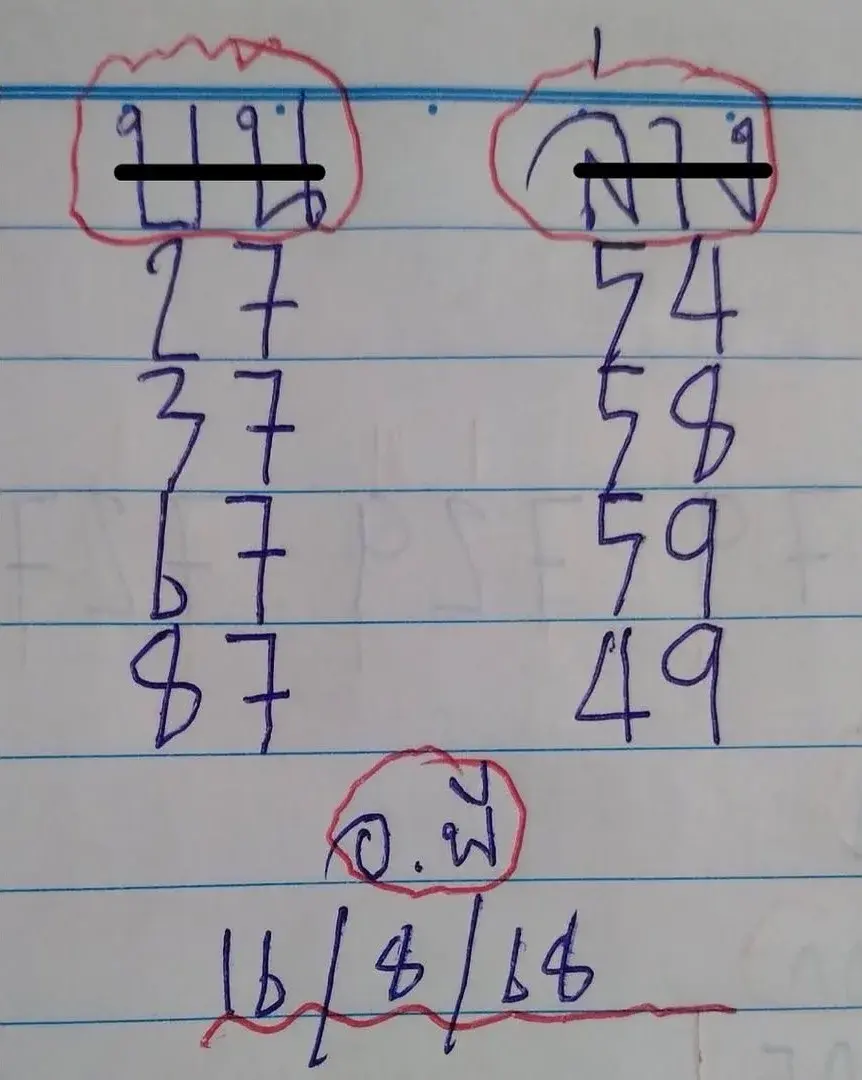 บน ล่าง
27 54
37 58
67 59
87 49
อ.พี
16/8/68